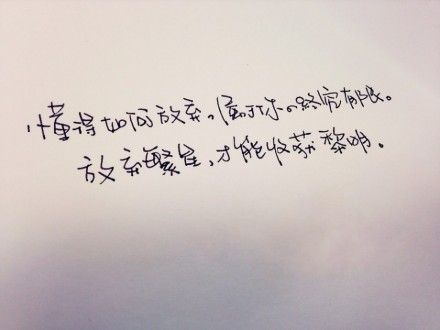 懂得如何放弃，属于你的終究有限。
放弃繁星，才能收获黎明。